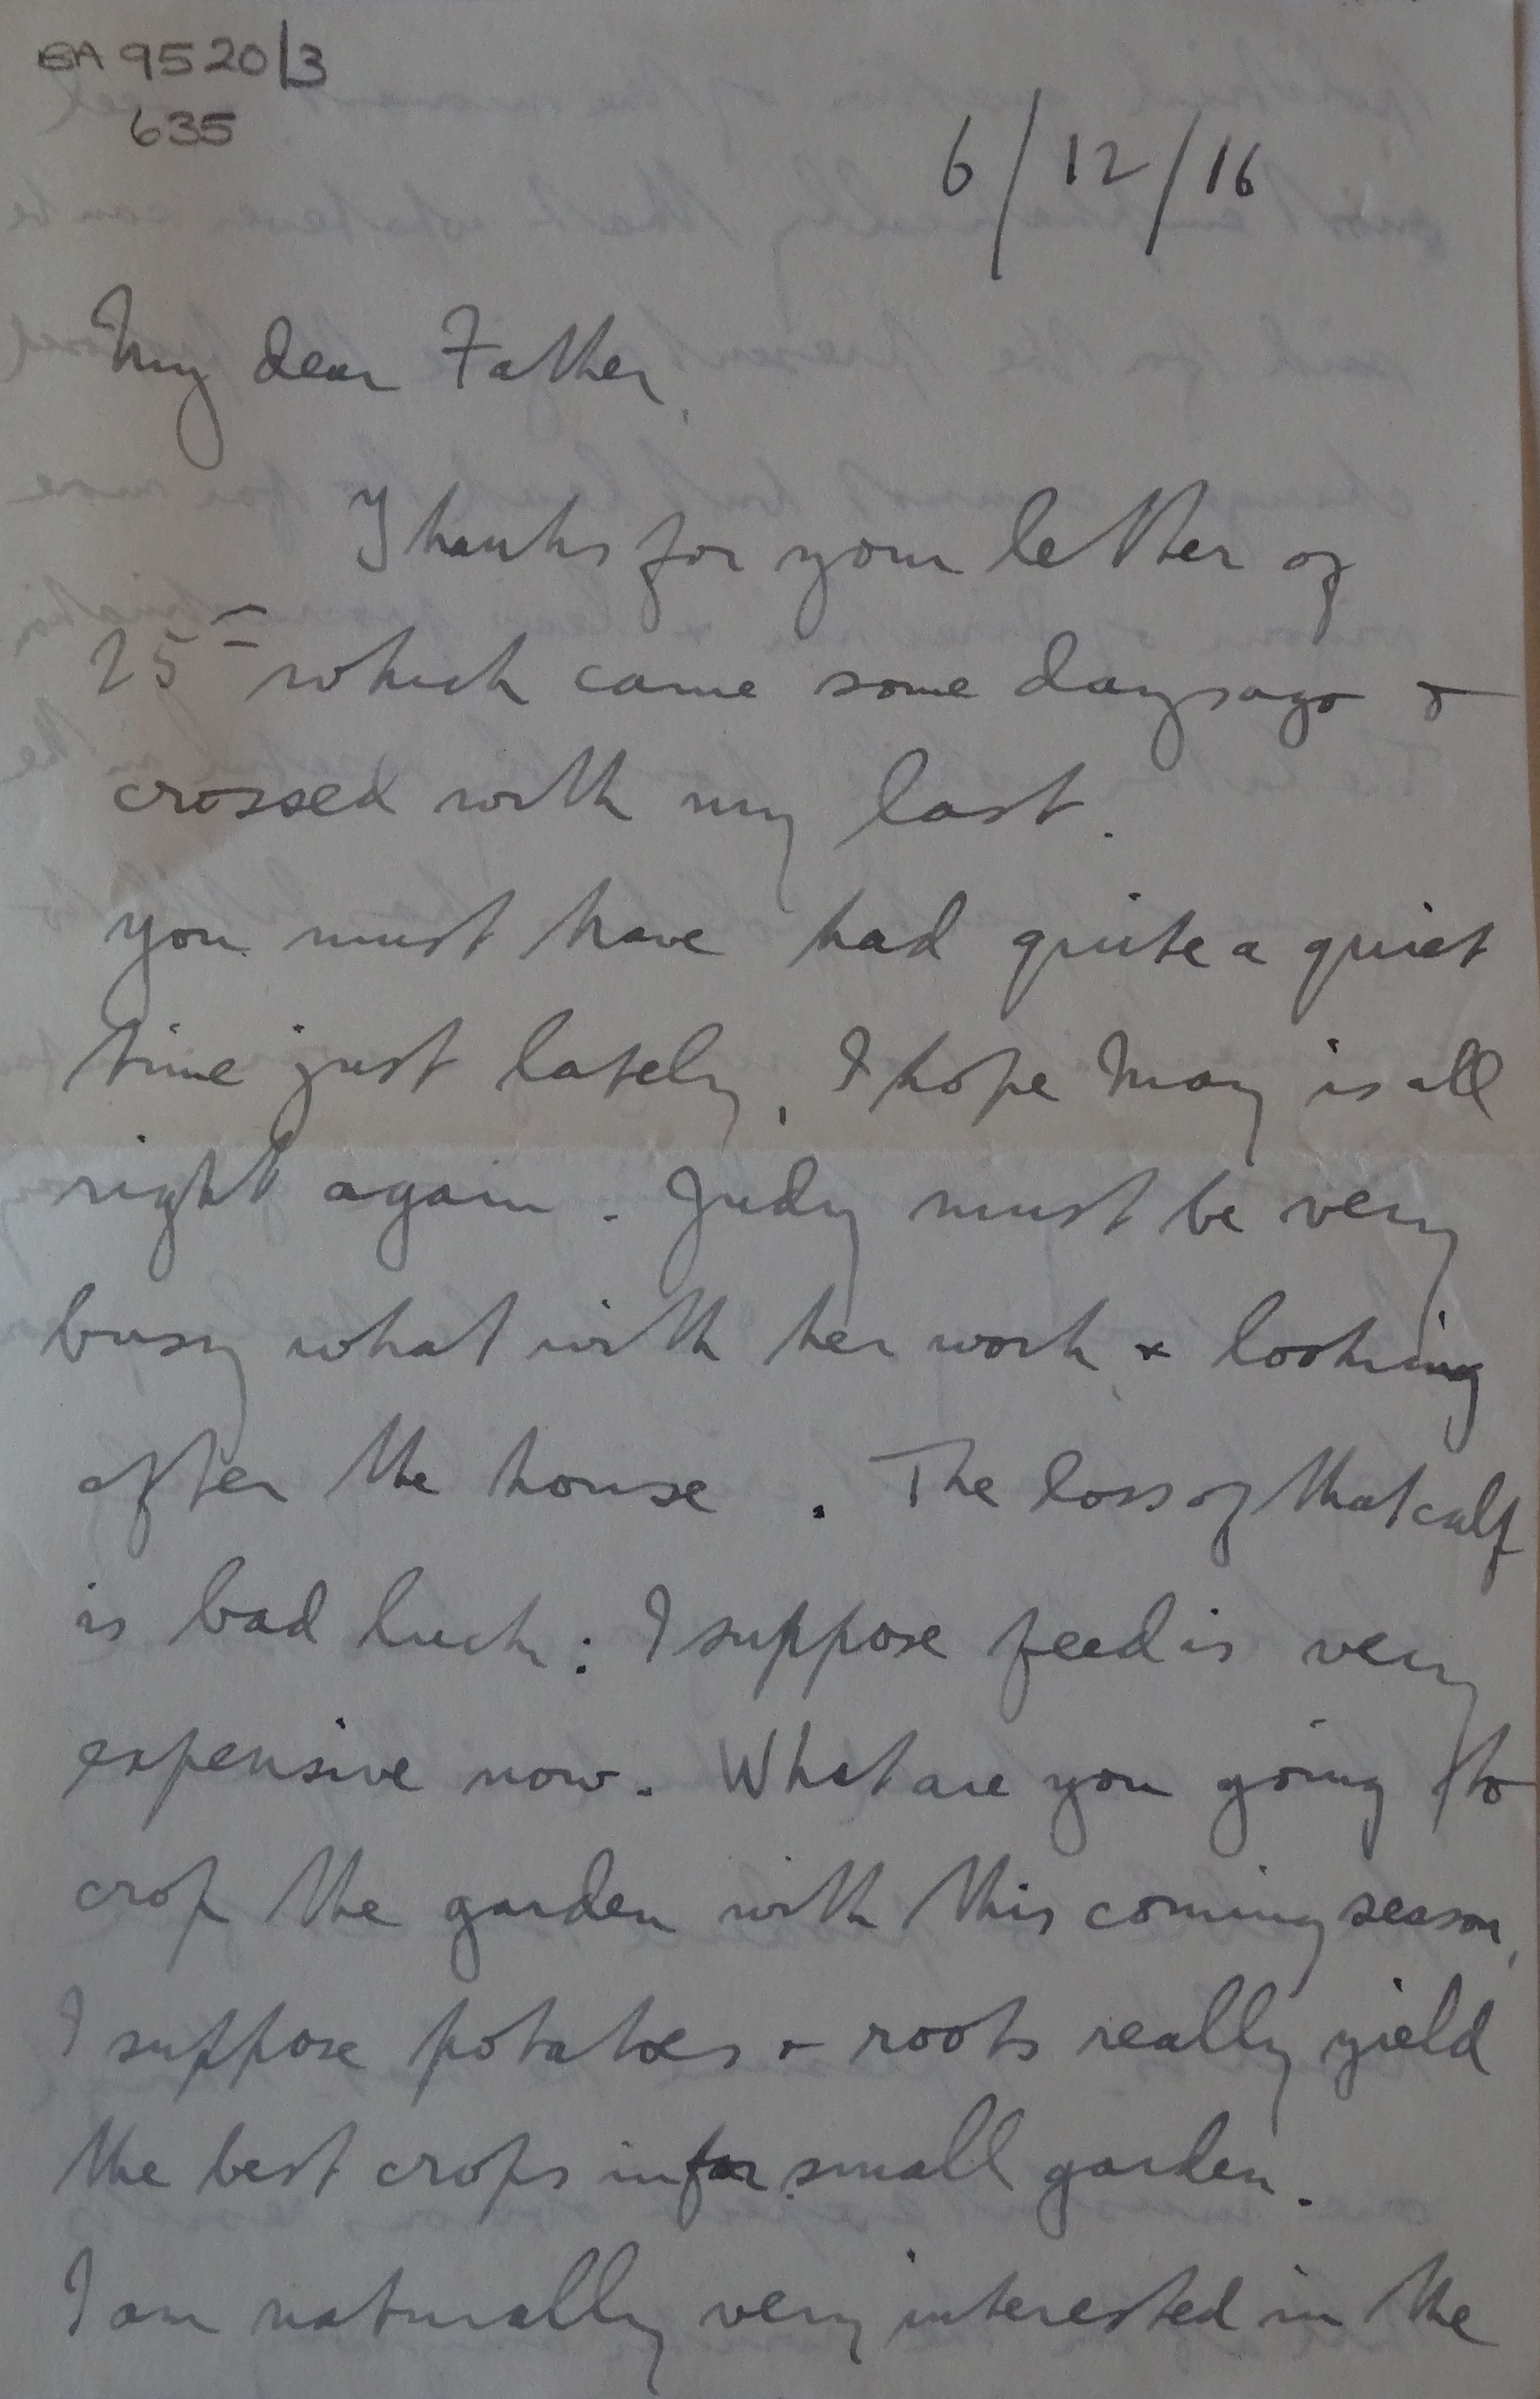 EA 9520/3
635
6/12/16
My dear Father,
Thanks for your letter of
25th which came some days ago &
crossed with my last.
you must have had quite a quiet
time just lately, I hope May is all
right again. Judy must be very
busy what with her work & looking
after the house. The loss of that calf
is bad luck: I suppose feed is very
expensive now. What are you going to
crop the garden with this coming season,
I suppose potatoes & roots really yield
the best crops in small garden.
I am naturally very interested in the